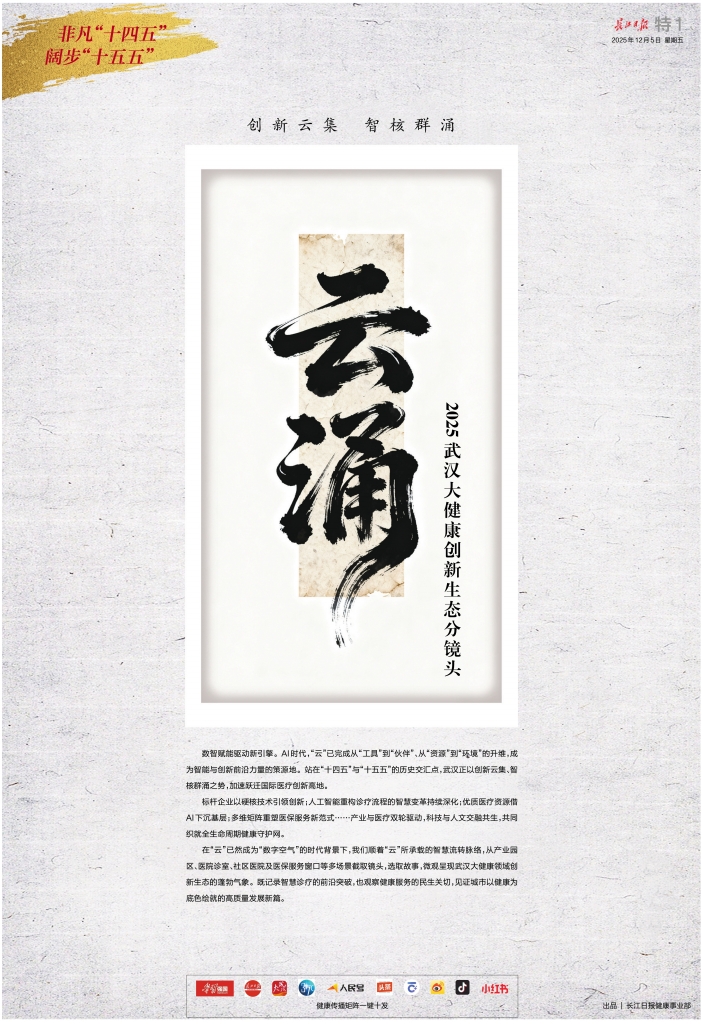 非凡“十四五”
阔步“十五五”
长江日报 特1
2025年12月5日 星期五
创新云集 智核群涌
云涌
2025武汉大健康创新生态分镜头
数智赋能驱动新引擎。AI时代，“云”已完成从“工具”到“伙伴”、从“资源”到“环境”的升维，成
为智能与创新前沿力量的策源地。站在“十四五”与“十五五”的历史交汇点，武汉正以创新云集、智
核群涌之势，加速跃迁国际医疗创新高地。
标杆企业以硬核技术引领创新；人工智能重构诊疗流程的智慧变革持续深化；优质医疗资源借
AI下沉基层；多维矩阵重塑医保服务新范式……产业与医疗双轮驱动，科技与人文交融共生，共同
织就全生命周期健康守护网。
在“云”已然成为“数字空气”的时代背景下，我们顺着“云”所承载的智慧流转脉络，从产业园
区、医院诊室、社区医院及医保服务窗口等多场景截取镜头，选取故事，微观呈现武汉大健康领域创
新生态的蓬勃气象。既记录智慧诊疗的前沿突破，也观察健康服务的民生关切，见证城市以健康为
底色绘就的高质量发展新篇。
学习强国 人民号 头条 小红书
健康传播矩阵一键十发
出品｜长江日报健康事业部